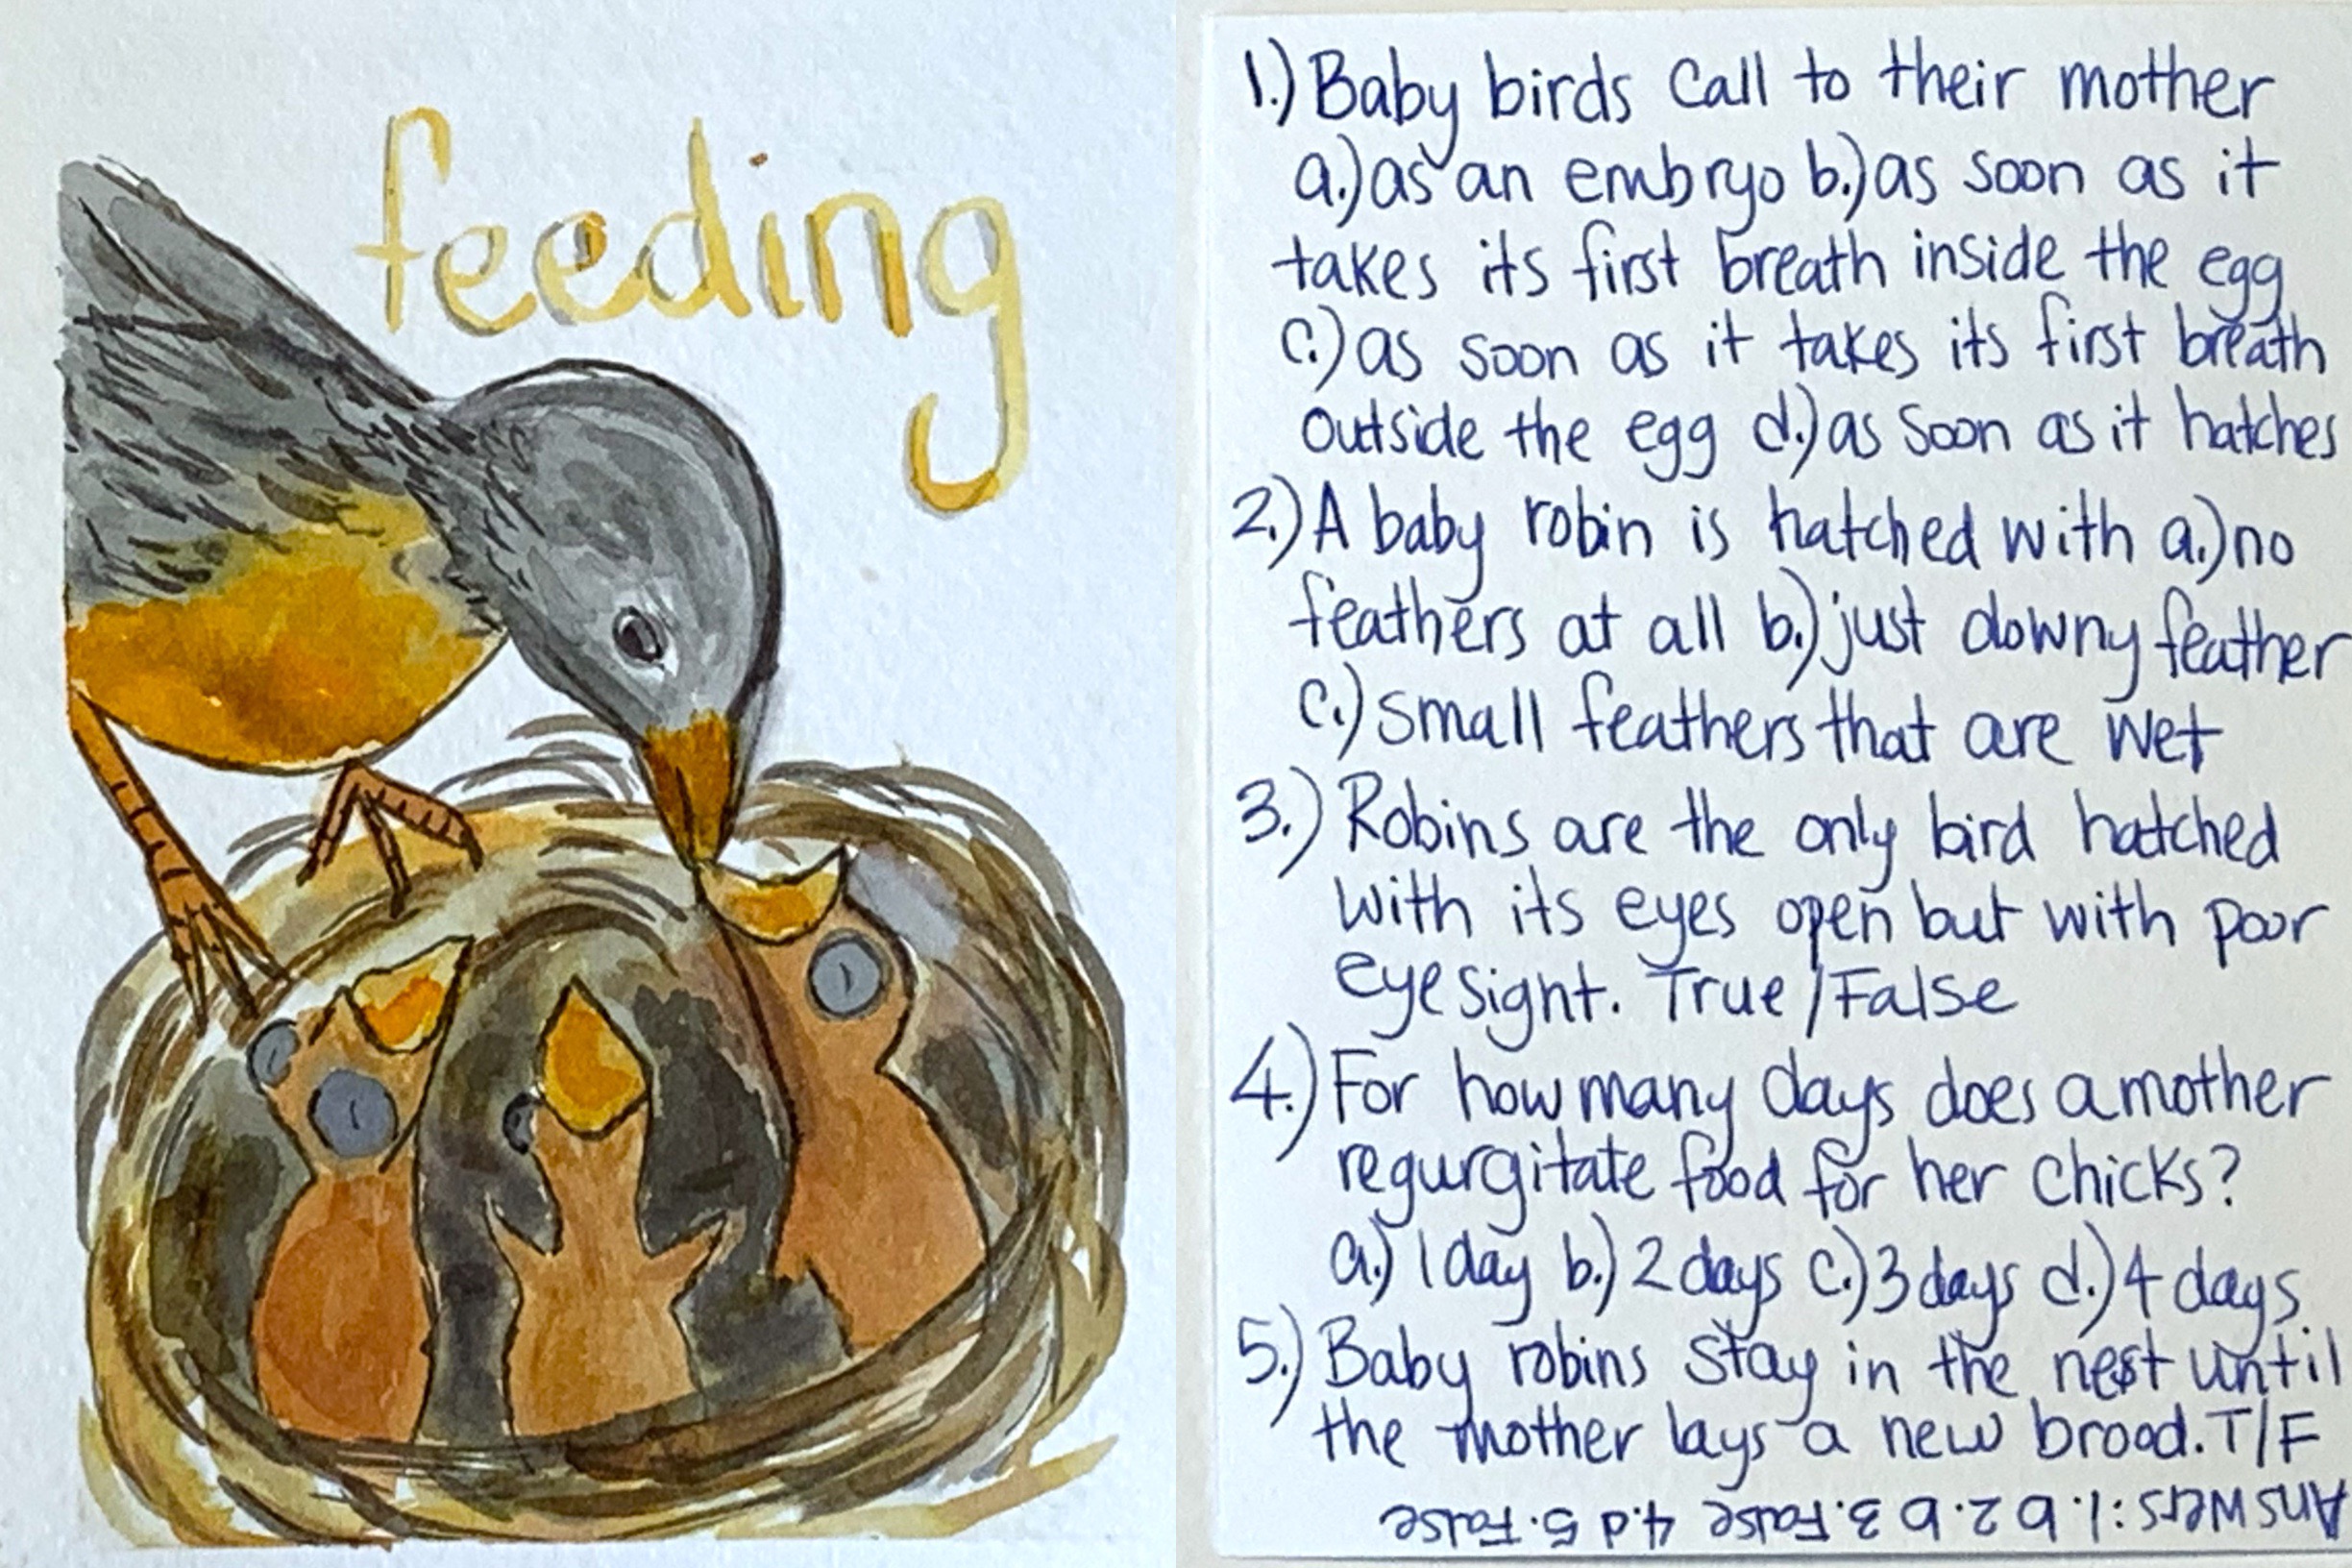 feeding
1.) Baby birds call to their mother
a.) as an embryo b.) as soon as it
takes its first breath inside the egg
c.) as soon as it takes its first breath
outside the egg d.) as soon as it hatches
2.) A baby robin is hatched with a.) no
feathers at all b.) just downy feather
c.) small feathers that are wet
3.) Robins are the only bird hatched
with its eyes open but with poor
eyesight. True/False
4.) For how many days does a mother
regurgitate food for her chicks?
a.) 1 day b.) 2 days c.) 3 days d.) 4 days
5.) Baby robins stay in the nest until
the mother lays a new brood. T/F
Answers: 1. b 2. b 3. False 4. d 5. False